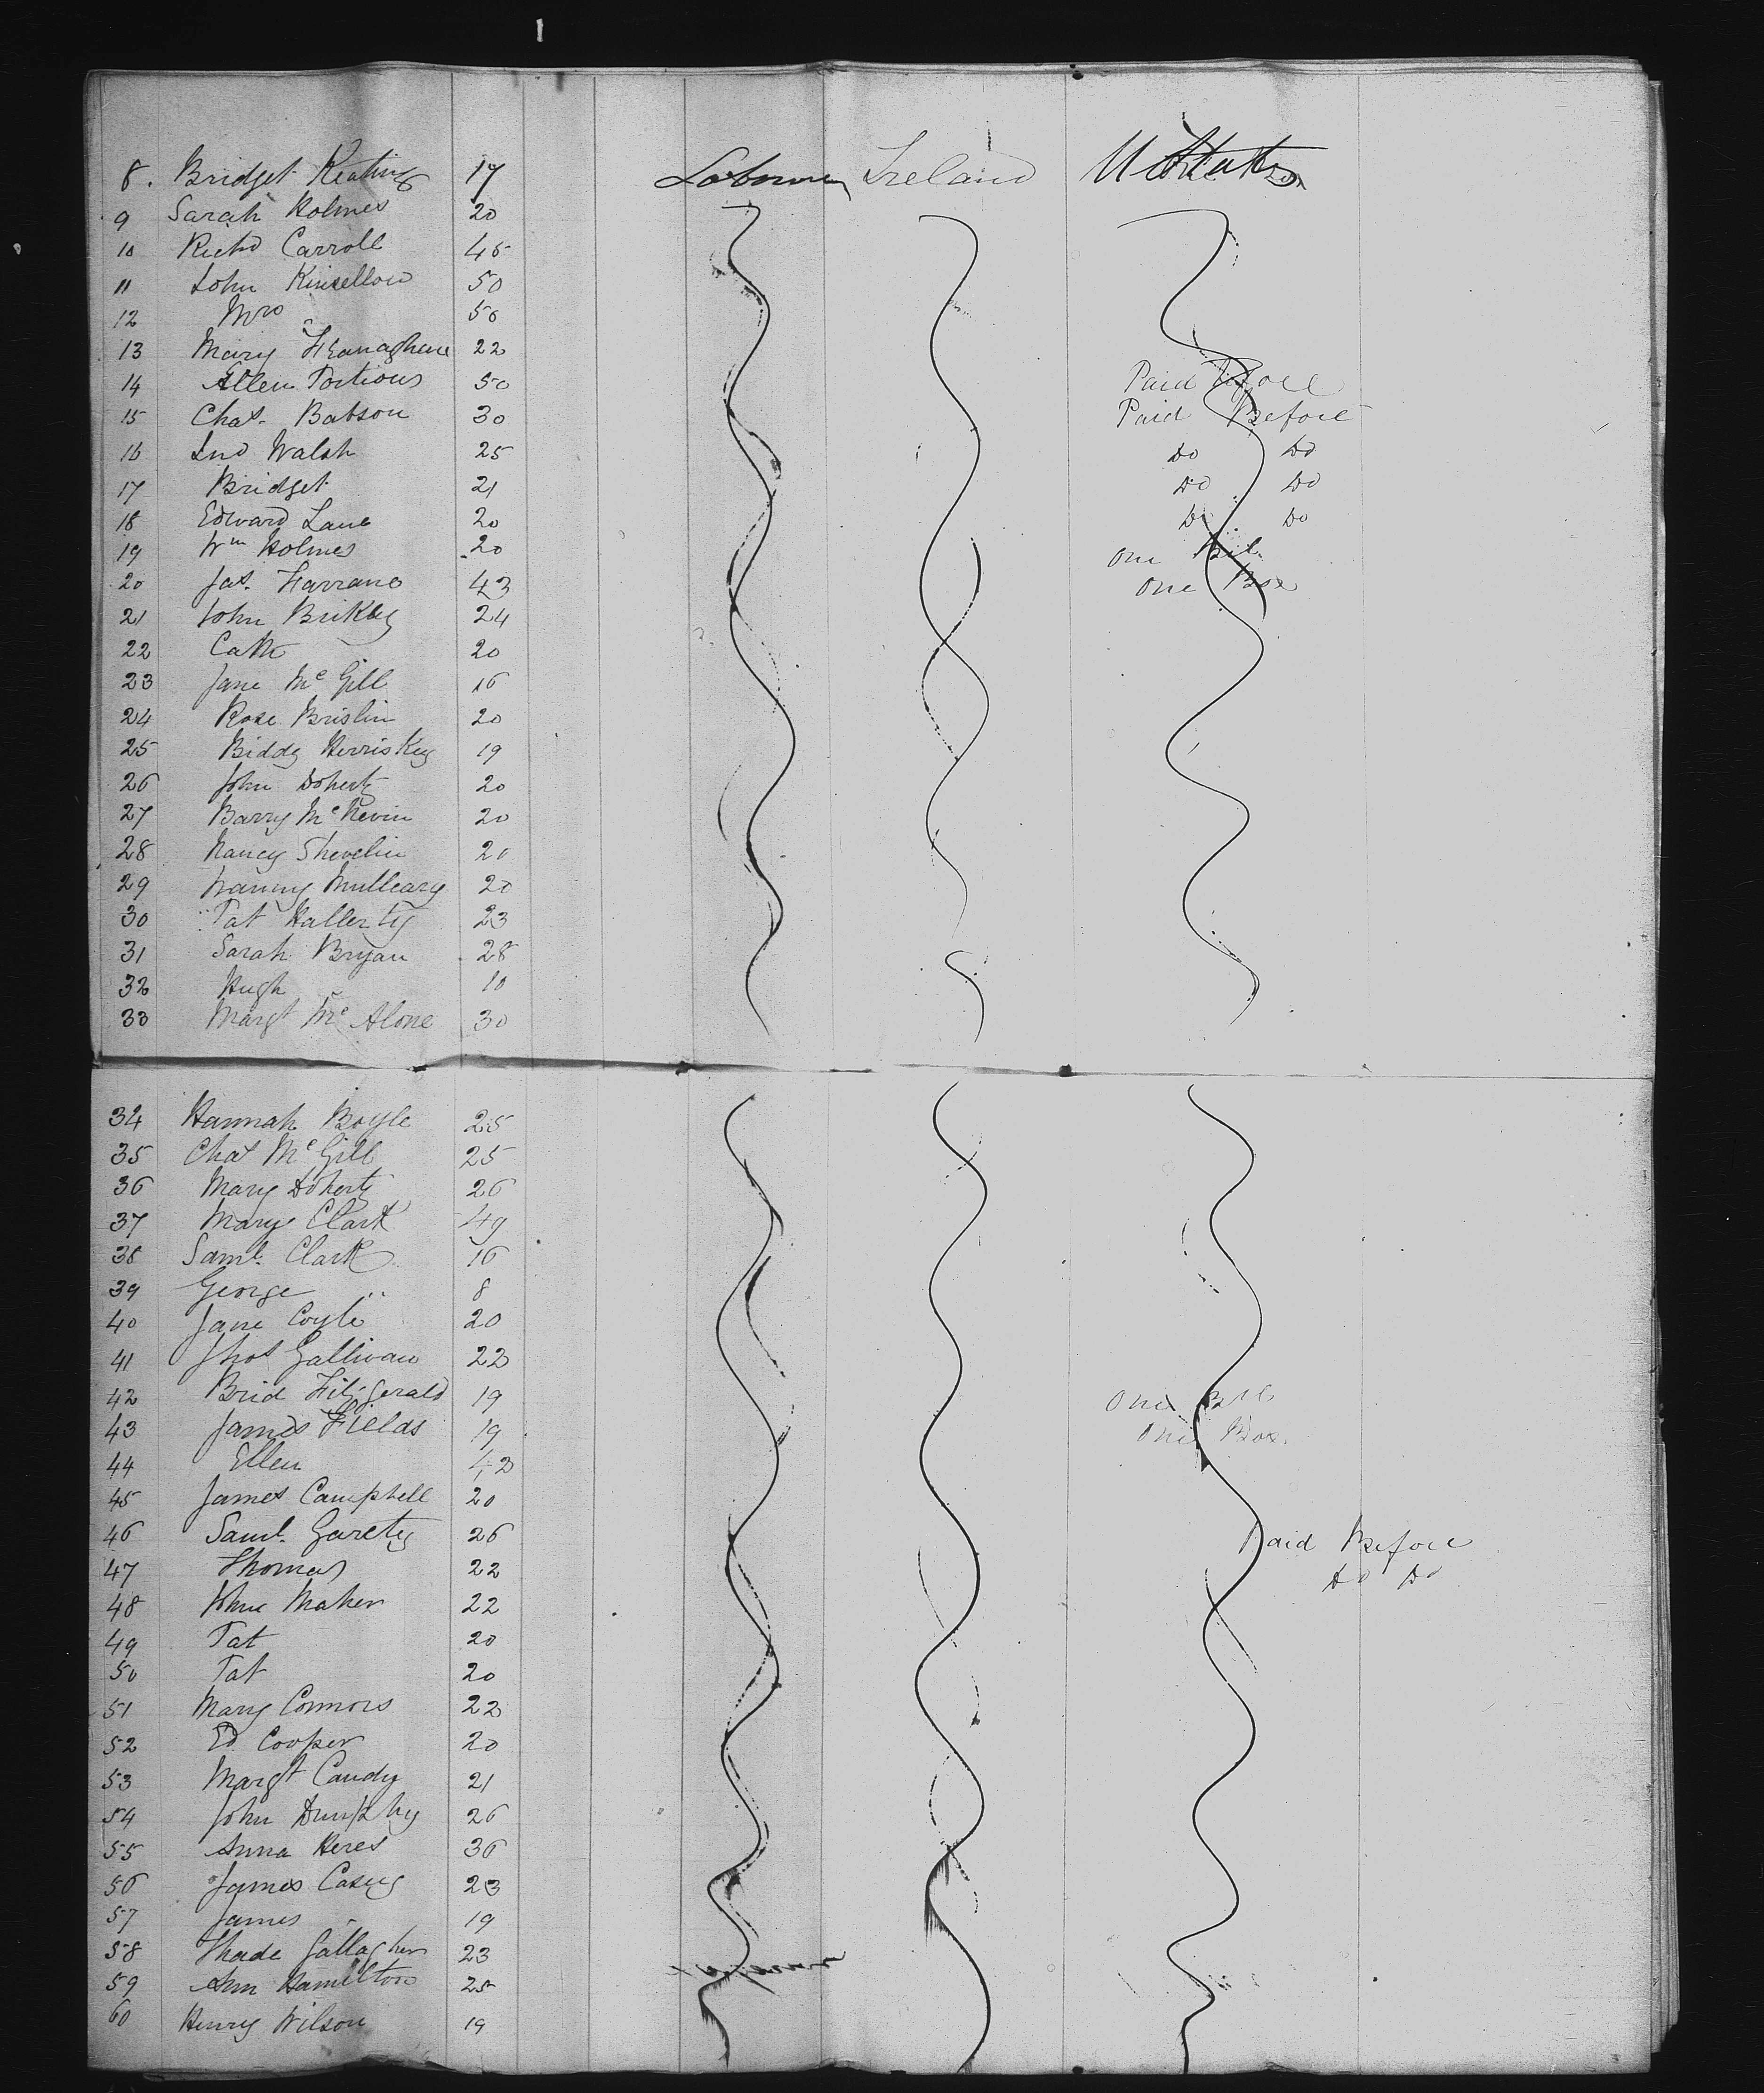 8. Bridget Keating 17 Labourer Ireland U States
9 Sarah Holmes 20
10 Richd Carroll 45
11 John Kinsellow 50
12 Mrs 50
13 Mary Flanaghan 22
14 Allen Portious 50 Paid Before
15 Chas. Babson 30 Paid Before
16 Jno Walsh 25 Do Do
17 Bridget 21 Do Do
18 Edward Lane 20 Do Do
19 Wm Holmes 20 One
20 Jas. Farrano 43 One Box
21 John Brikley 24
22 Cath 20
23 Jane McGill 16
24 Rose Brislin 20
25 Biddy Herriskey 19
26 John Doherty 20
27 Barry McKevin 20
28 Nancy Shevelin 20
29 Nanny Mulleary 20
30 Pat Hallerty 23
31 Sarah Bryan 28
32 Hugh 10
33 Margt McAlone 30
34 Hannah Boyle 25
35 Chas McGill 25
36 Mary Doherty 26
37 Mary Clark 49
38 Saml. Clark 16
39 George " 8
40 Jane Coyle 20
41 Thos Gallivan 22
42 Brid Fitzgerald 19 One
43 James Fields 19 One Box
44 Ellen 42
45 James Campbell 20
46 Saml. Garety 26 Paid Before
47 Thomas 22 Do Do
48 John Maher 22
49 Pat 20
50 Pat 20
51 Mary Connors 22
52 Ed Cooper 20
53 Margt Candy 21
54 John Dunphy 26
55 Anna Heres 36
56 James Casey 23
57 James 19
58 Thade Gallagher 23
59 Ann Hamilton 25
60 Henry Wilson 19